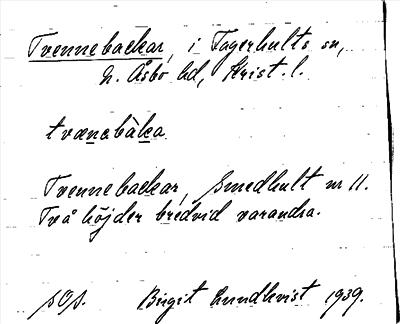 Tvennebackar, i Fagerhults sn,
N. Åsbo hd, Krist. l.
tvænebàka
Tvennebackar, Smedhult nr 11.
Två höjder bredvid varandra.
Birgit Lundkvist 1939.